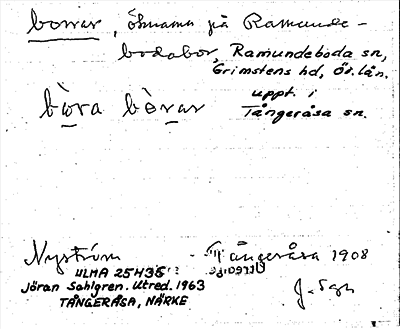 borrar, öknamn på Ramunde-
bodabor, Ramundeboda sn,
Grimstens hd, Ör. län.
uppt. i
Tångeråsa sn.
bòra bòrar
Nyström - Tångeråsa 1908
ULMA 25435
Jöran Sahlgren. Utred. 1963
TÅNGERÅSA, NÄRKE
J. Sgn